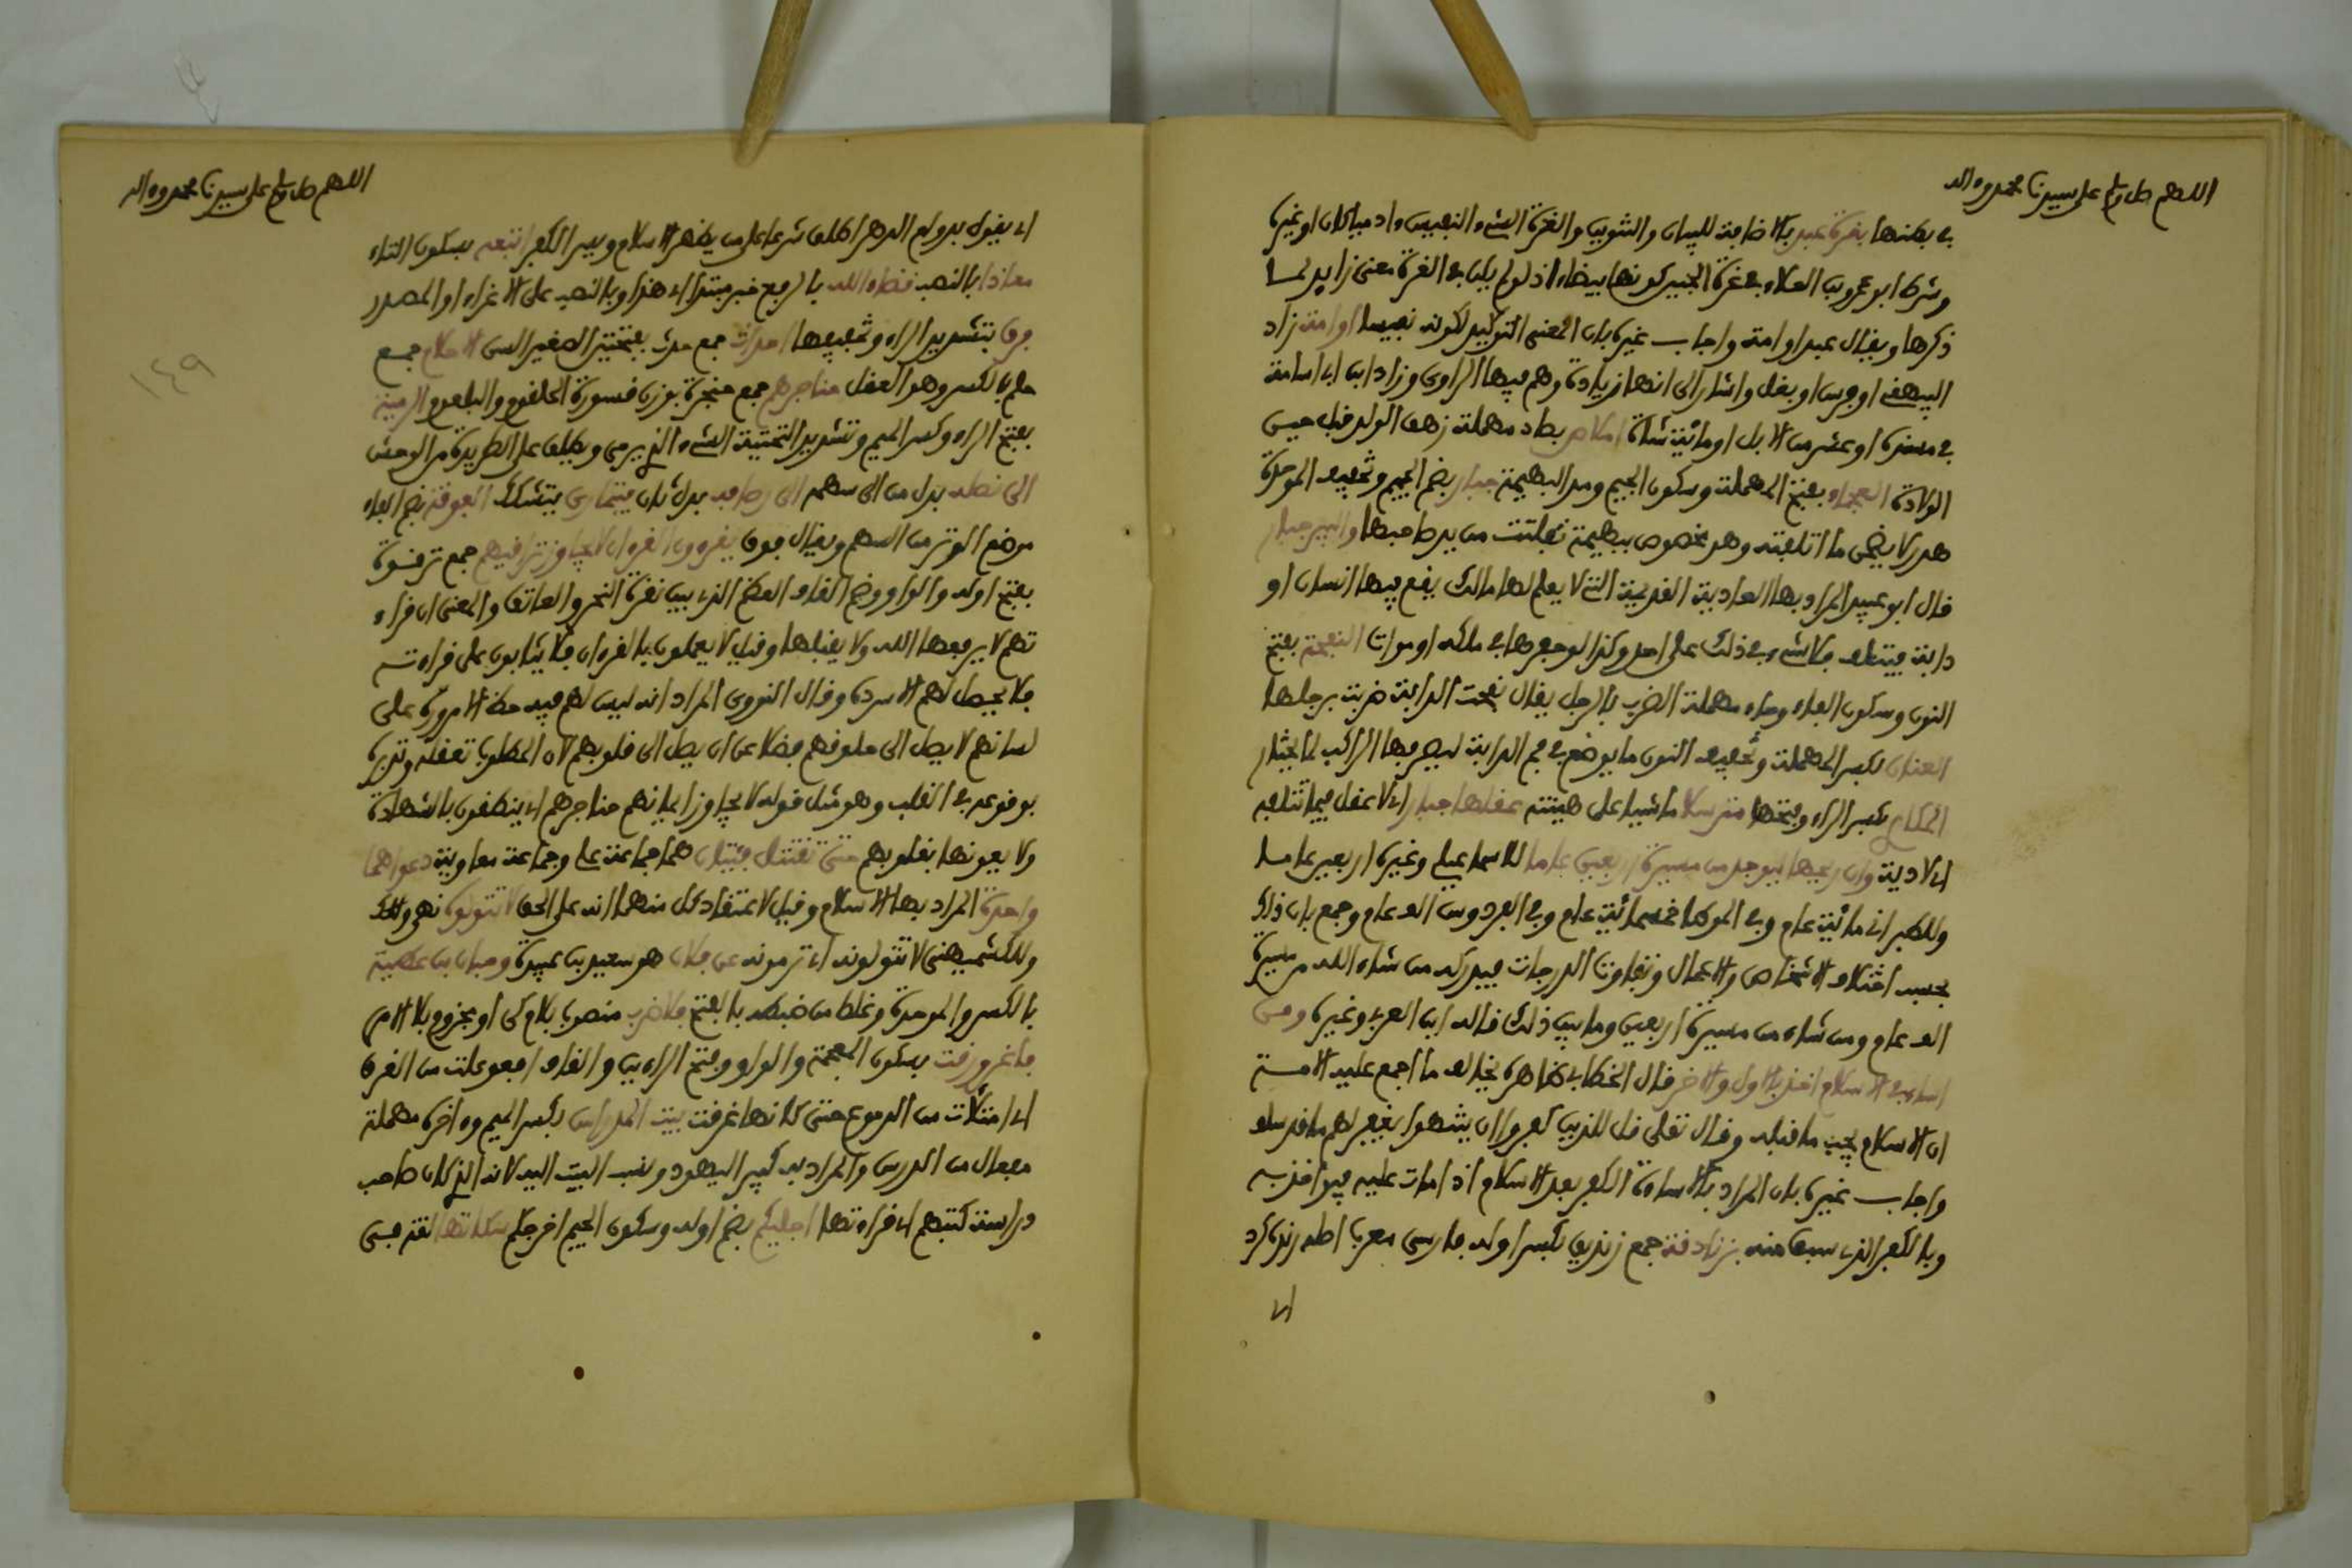 اللهم صل وسلم على سيدنا محمد وءاله
في بطنها بغرة عبد بالاضافة للبيان والتنوين والغرة الشيء النفيس ءادميا كان او غيره
وشرط ابو عمرو بن العلاء في غرة الجنين كونها بيضاء اذ لو لم يكن في الغرة معنى زايد لما
ذكرها ويقال عبد او امة واجاب غيره بان المعنى التوكيد لكونه نفيسا او امة زاد
البيهقي او فرس او بغل واشار الى انها زيادة وهم فيها الراوي وزاد ابن ابي اسامة
في مسنده او عشر من الابل او مائة شاة املاص بصاد مهملة زهق الولد قبل حين
الولادة العجماء بفتح المهملة وسكون الجيم ومد البهيمة جبار بضم الجيم وتخفيف الموحدة
هدر لا يضمن ما اتلفته وهو مخصوص ببهيمة تفلتت من يد صاحبها والبير جبار
قال ابو عبيد المراد بها العادية القديمة التي لا يعلم لها مالك يقع فيها انسان او
دابة فيتلف فلا شيء في ذلك على احد وكذا لو حفرها في ملكه او موات النفحة بفتح
النون وسكون الفاء وحاء مهملة الضرب بالرجل يقال نفحت الدابة ضربت برجلها
العنان بكسر المهملة وتخفيف النون ما يوضع في فم الدابة ليصرفها الراكب لما يختار
المكاري بكسر الراء وفتحها مترسلا ماشيا على هينته عقلها جبار اي لا عقل فيما تتلفه
اي لا دية وان ريحها ليوجد من مسيرة اربعين عاما للاسماعيلي وغيره اربعين عاما
وللطبراني مائة عام وفي الموطا خمسمائة عام وفي الفردوس الف عام وجمع بان ذلك
بحسب اختلاف الاشخاص والاعمال وتفاوت الدرجات فيدركه من شاء الله من مسيرة
الف عام ومن شاء من مسيرة اربعين وما بين ذلك قاله ابن العربي وغيره ومن
اساء في الاسلام اخذ بالاول والاخر قال الخطابي ظاهره يخالف ما اجمع عليه الامة
ان الاسلام يجب ما قبله وقال تعلى قل للذين كفروا ان ينتهوا يغفر لهم ما قد سلف
واجاب غيره بان المراد بالاساءة الكفر بعد الاسلام اذا مات عليه فيواخذ به
وبالكفر الذي سبق منه بزنادقة جمع زنديق بكسر اوله فارسي معرب اصله زنده كرد
اي
اللهم صل وسلم على سيدنا محمد وءاله
اي يقول بدوام الدهر اطلق شرعا على من يظهر الاسلام ويسر الكفر اتبعه بسكون التاء
معاذا بالنصب قضاء الله بالرفع خبر مبتدا اي هذا وبالنصب على الاغراء او المصدر
فرق بتشديد الراء وتخفيفها احداث جمع حدث بفتحتين الصغير السن الاحلام جمع
حلم بالكسر وهو العقل حناجرهم جمع حنجرة بوزن قسورة الحلقوم والبلعوم الرمية
بفتح الراء وكسر الميم وتشديد التحتية الشيء الذي يرمى ويطلق على الطريدة من الوحش
الى نصله بدل من الى سهمه الى رصافه بدل ثان فيتمارى يتشكك الفوقة بضم الفاء
موضع الوتر من السهم ويقال فوق يقرءون القرءان لا يجاوز تراقيهم جمع ترقوة
بفتح اوله والواو وضم القاف العظم الذي بين نقرة النحر والعاتق والمعنى ان قراء
تهم لا يرفعها الله ولا يقبلها وقيل لا يعملون بالقرءان فلا يثابون على قراءته
فلا يحصل لهم الا سرده وقال النووي المراد انه ليس لهم فيه حظ الا مروره على
لسانهم لا يصل الى حلوقهم فضلا عن ان يصل الى قلوبهم لان المطلوب تعقله وتدبره
بوقوعه في القلب وهو مثل قوله لا يجاوز ايمانهم حناجرهم اي ينطقون بالشهادة
ولا يعونها بقلوبهم حتى تقتتل فئتان هما جماعة علي وجماعة معاوية دعواهما
واحدة المراد بها الاسلام وقيل لاعتقاد كل منهما انه على الحق لا تقولوه نهي
وللكشميهني لا تقولونه اي ترمونه عن فلان هو سعيد بن عبيدة وحبان بن عطية
بالكسر والموحدة وغلط من ضبطه بالفتح فلاضرب منصوب بلام كي او مجزوم بلا الامر
فاغرورقت بسكون المعجمة والواو وفتح الراءين والقاف افعوعلت من الغرق
اي امتلات من الدموع حتى كانها غرقت بيت المدراس بكسر الميم وءاخره مهملة
مفعال من الدرس والمراد به كبير اليهود ونسب البيت اليه لانه الذي كان صاحب
دراسة كتبهم اي قراءتها اجليكم بضم اوله وسكون الجيم اخرجكم
١٤٩